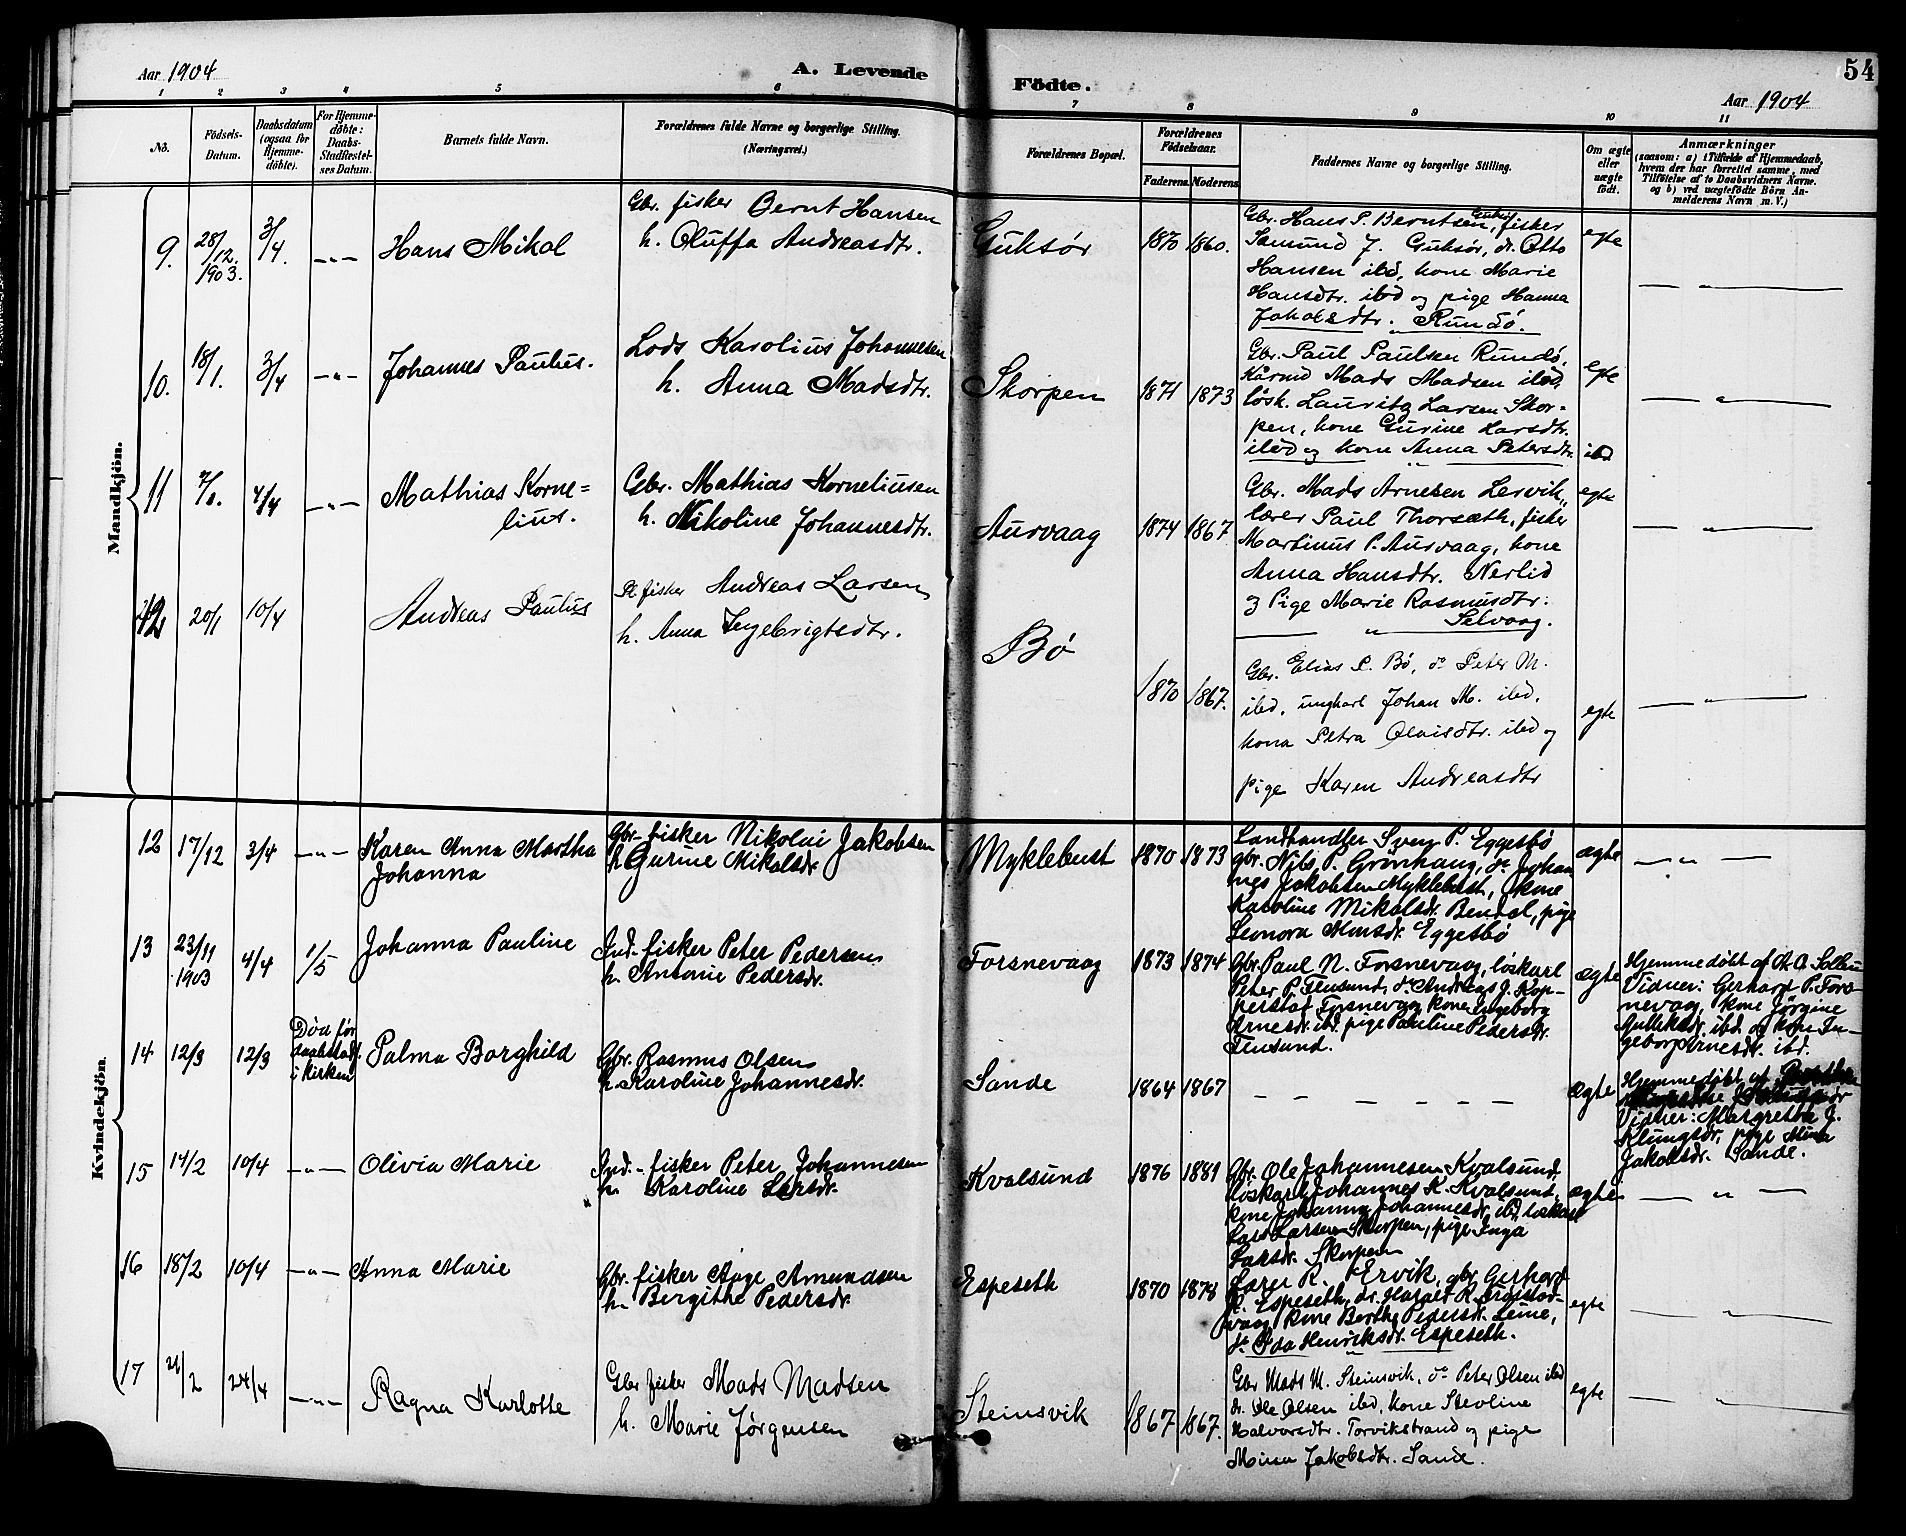 Aar 1904
A. Levende
Födte.
54
Aar 1904
1 2 3 4 5 6 7 8 9 10 11
No.
Födsels-
Datum.
Daabsdatum
(ogsaa for
Hjemme-
döbte).
For Hjemme-
döbte:
Daabs-
Stadfæstel-
ses Datum.
Barnets fulde Navn.
Forældrenes fulde Navne og borgerlige Stilling.
(Næringsvei.)
Forældrenes Bopæl.
Forældrenes
Födselsaar.
Faderens. Moderens.
Faddernes Navne og borgerlige Stilling.
Om ægte
eller
uægte
födt.
Anmærkninger
(saasom: a) i Tilfælde af Hjemmedaab,
hvem der har forrettet samme, med
Tilföielse af to Daabsvidners Navne.
og b) ved uægtefödte Börn An-
melderens Navn m. V.)
Mandkjön.
9. 28/12. 1903. 3/4. —"— Hans Mikal
Gbr. fisker Bernt Hansen
h. Oluffa Andreasdtr.
Guksør 1870 1860.
Gbr. Hans P. Berntsen Guksør, fisker
Samund J. Guksør, do. Otto
Hansen ibd, kone Marie
Hansdtr. ibd og pige Hanna
Jakobsdtr. Rundö.
egte — " —
10. 18/1. 3/4 —"— Johannes Paulus.
Lods Karolius Johannesen
h. Anna Madsdtr.
Skorpen 1871 1873
Gbr. Paul Paulsen Rundö,
Mads Madsen ibd,
løsk. Lauritz Larsen Skor-
pen, kone Gurine Larsdtr.
ibd og kone Anna Petersdtr. ibd
egte — " —
11 4/4 —"— Mathias Korne=
lius.
Gbr. Mathias Korneliusen
h. Nikoline Johannesdtr.
Aurvaag 1874 1867
Gbr. Mads Arnesen Lervik,
lærer Paul Thorsæth, fisker
Martinus P. Aurvaag, kone
Anna Hansdtr. Nerlid
og Pige Marie Rasmusdtr.
Selvaag.
egte — " —
12 20/1 10/4 Andreas Paulus
fisker Andreas Larsen
h. Anna Ingebrigtsdtr.
Bø 1870 1867.
Gbr. Elias P. Bø, do Peter M.
ibd, ungkarl Johan M. ibd,
kona Petra Olaisdtr. ibd og
pige Karen Andreasdtr
egte — " —
Kvindekjön
12 17/12 3/4 —"— Karen Anna Martha
Johanna
Gbr-fisker Nikolai Jakobsen
h. Gurine Mikalsdr.
Myklebust 1870 1873
Landhandler Sven P. Eggesbö
gbr. Nils P. Grönhaug, do Johan-
nes Jakobsen Myklebust, kone
Karoline Mikalsdr. Bendal, pige
Leonora Monsdr. Eggesbö
ægte — " —
13 23/11 1903 4/4 1/5 Johanna Pauline
Ind-fisker Peter Pedersen
h. Antonie Pedersdr.
Forsnevaag 1873 1874
Gbr. Paul N. Forsnevaag, löskarl
Peter P. Flusund, do Andreas J. Kop-
perstad Forsnevaag kone Ingeborg
Arnesdr. ibd. pige Pauline Pedersdr.
Flusund.
ægte
Hjemmedøbt af
Vidner: Gerhard P. Fors-
nevaag, kone Jørgine
ibd. og kone In-
geborg Arnesdr. ibd.
14 12/3 12/3 Död før
daabstadf.
i kirken
Palma Borghild
Gbr. Rasmus Olsen
h. Karoline Johannesdr.
Sande 1864 1867
— — — — — —
ægte
Hjemmedøbt af
Vidner: Margrethe J.
pige Mina
Jakobsdr. Sande.
15 14/2 10/4 —"— Olivia Marie
Ind-fisker Peter Johannesen
h. Karoline Larsdr.
Kvalsund 1876 1881
Gbr. Ole Johannesen Kvalsund
löskarl Johannes K. Kvalsund,
kone Johanna Johannesdr. ibd, löskarl
Lars Larsen Skorpen, pige Inga
Larsdr. Skorpen
ægte — " —
16 18/2 10/4 —"— Anna Marie
Gbr-fisker Aage Amundsen
h. Bergithe Pedersdr.
Espeseth 1870 1878
Lærer R. Ervik, gbr. Gerhard
R. Espeseth, do. Harald R.
vaag kone Berthe Pedersdr. Leine,
do Oda Henriksdr. Espeseth.
egte — " —
17 24/4 —"— Ragna Karlotte
Gbr fisker Mads Madsen
h. Marie Jørgensen
Steinsvik 1867 1867.
Gbr Mads M. Steinsvik, do Peter Olsen ibd
do. Ole Olsen ibd, kone Stevline
Halvorsdtr. Torvikstrand og pige
Mina Jakobsdtr. Sande.
egte — " —